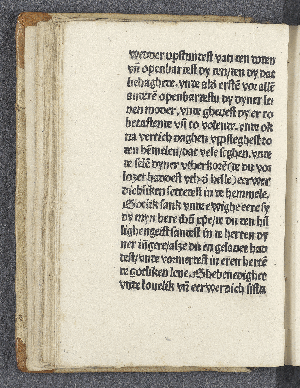 wedder vpstundest van den doden
vñ openbardest dy den/den dy dat
behaghede. vnde alder erste vor allen
anderē openbardestu dy dyner le
uen moder. vnde gheuest dy er to
betastende vñ to volende. vnde ok
na vertich daghen vpsteghest to
den hēmelen/dat vele seghen. vnde
de selē dyner vtherkorē/de du vor
lozet haddest vth der helle/eerwer
dichliken settetest in de hemmele.
Gode sank vnde ewighe eere sy
dy myn here ihū xpe/de du den hil
lighen geest sandest in de herten dy
ner iūgere/alze du en gelauet had
dest/vnde vormerdest in eren herte
de gotliken leue. Ghebenedighet
vnde louelik vñ eerwerdich sistu